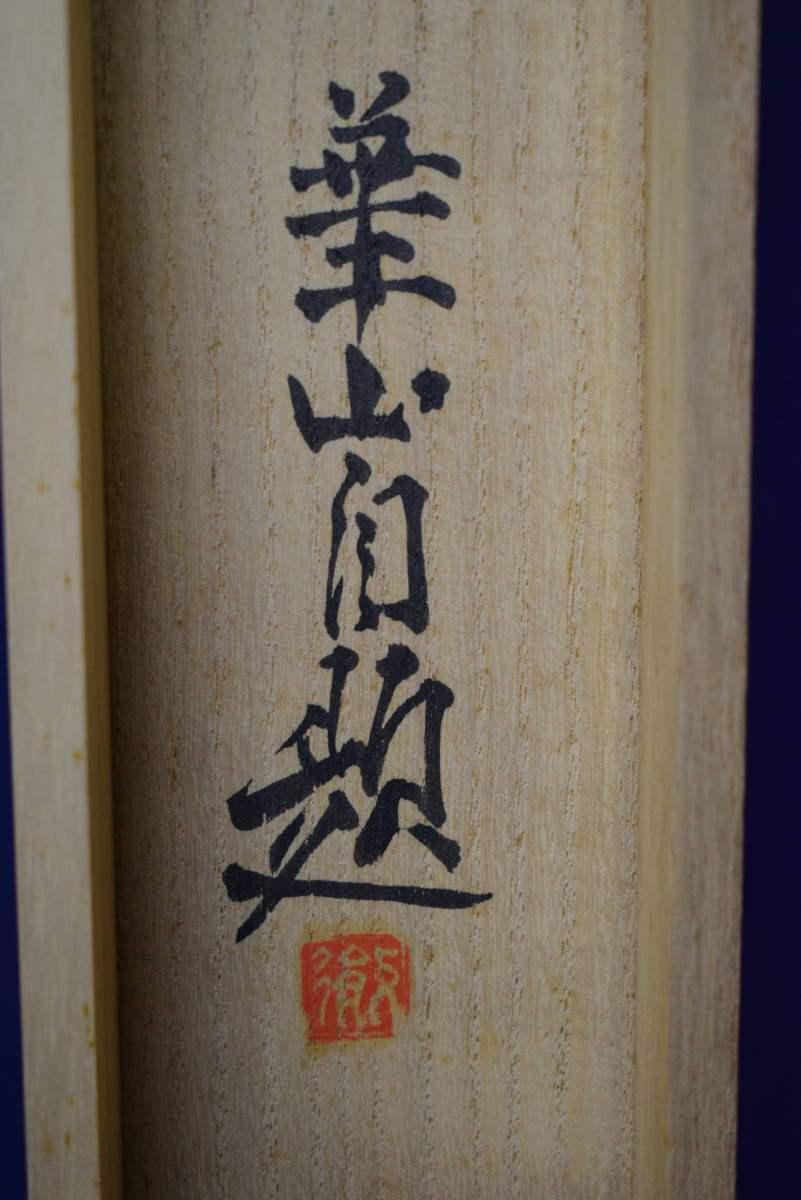 華山自題
徹